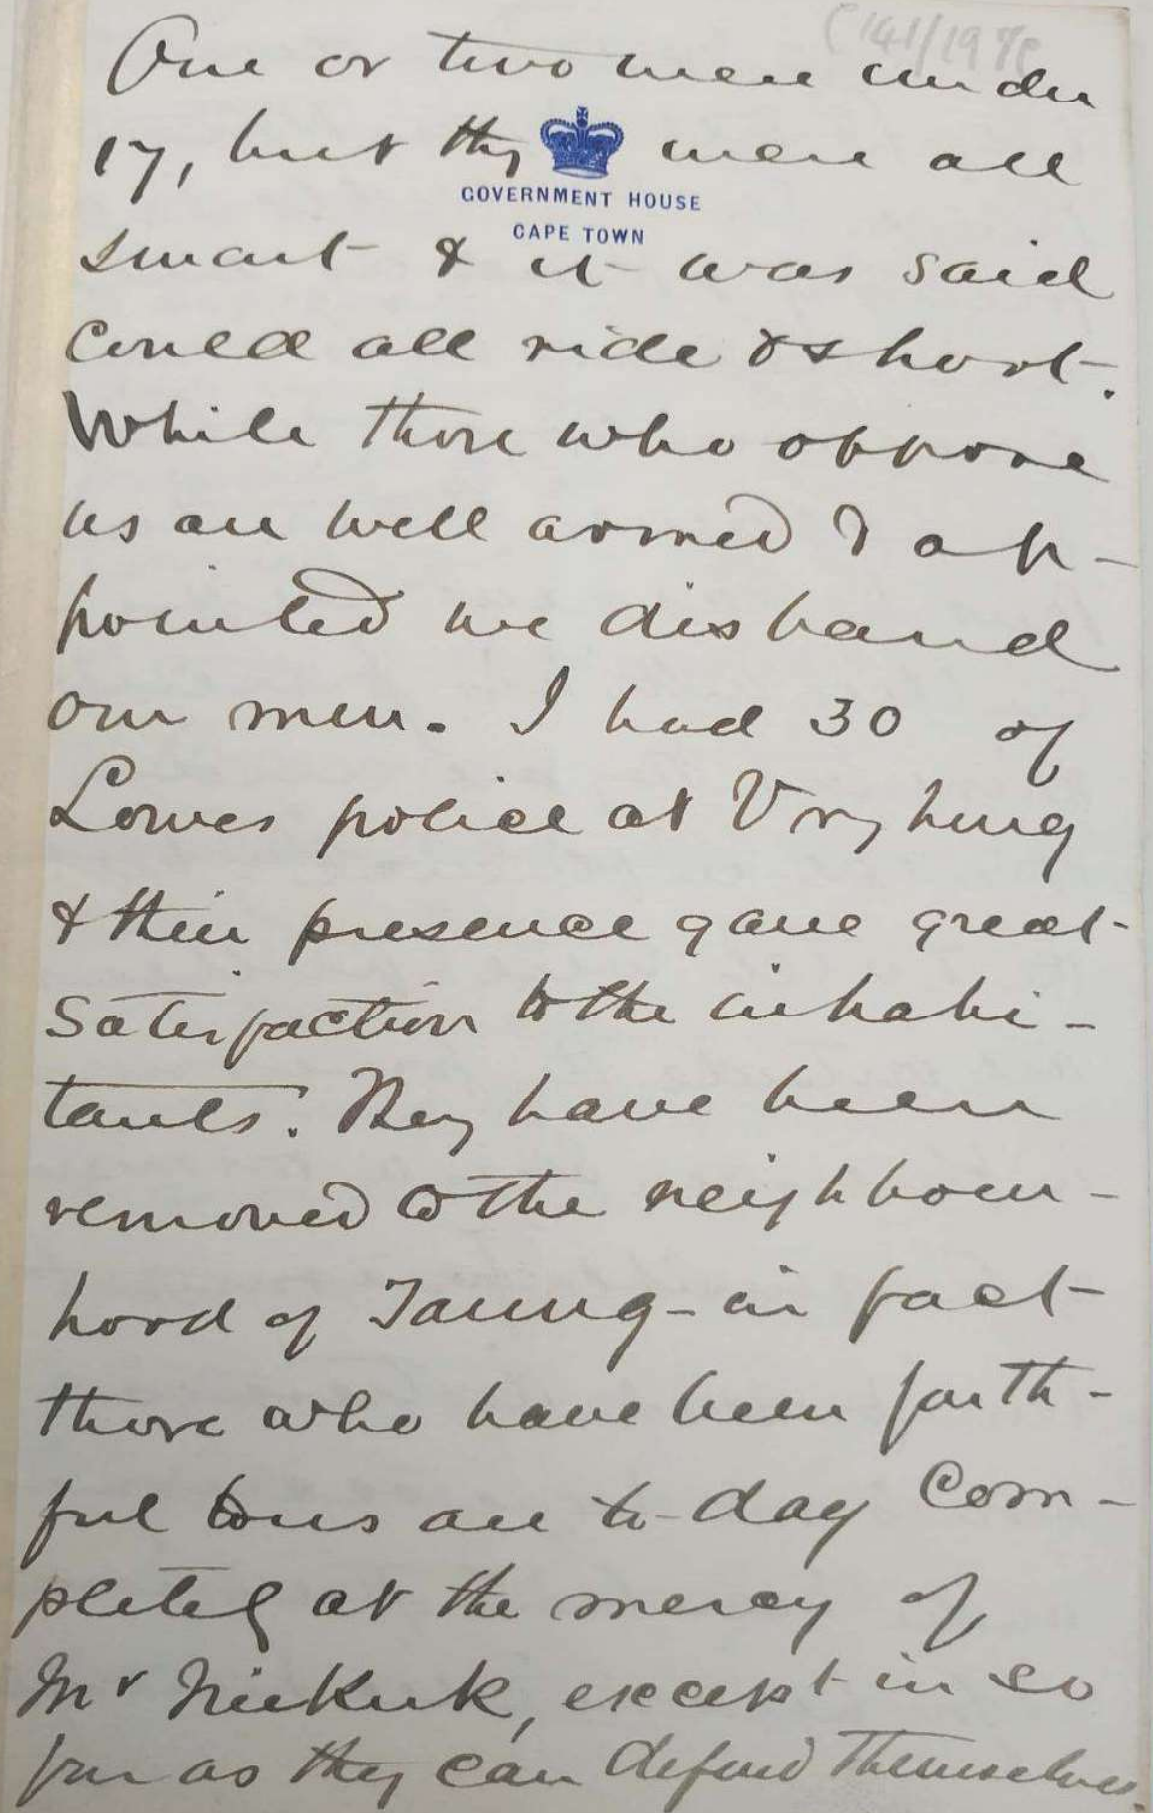 C 141/19 %
One or two were under
17, but they were all
GOVERNMENT HOUSE
CAPE TOWN
smart & it was said
could all ride & shoot.
While those who oppose
us are well armed & ap-
pointed we disband
our men. I had 30 of
Lowes police at Vryburg
& their presence gave great
satisfaction to the inhabi-
tants. They have been
removed to the neighbour-
hood of Taung - in fact
those who have been faith-
ful to us are to-day Com-
pletely at the mercy of
Mr Niekerk, except in so
far as they can defend themselves.